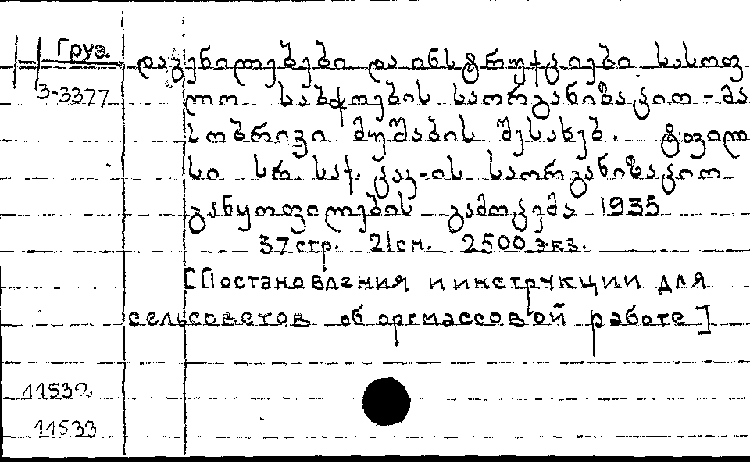 Груз. დადგენილებები და ინსტრუქციები სასოფ
3-3377 ლო საბჭოების საორგანიზაციო-მა
სობრივი მუშაობის შესახებ. ტფილი
სი სრ. საქ. ცაკ-ის საორგანიზაციო
განყოფილების გამოცემა 1935
37 стр. 21 см. 2500 экз.
[Постановления и инструкции для
сельсоветов об оргмассовой работе]
11532
11533